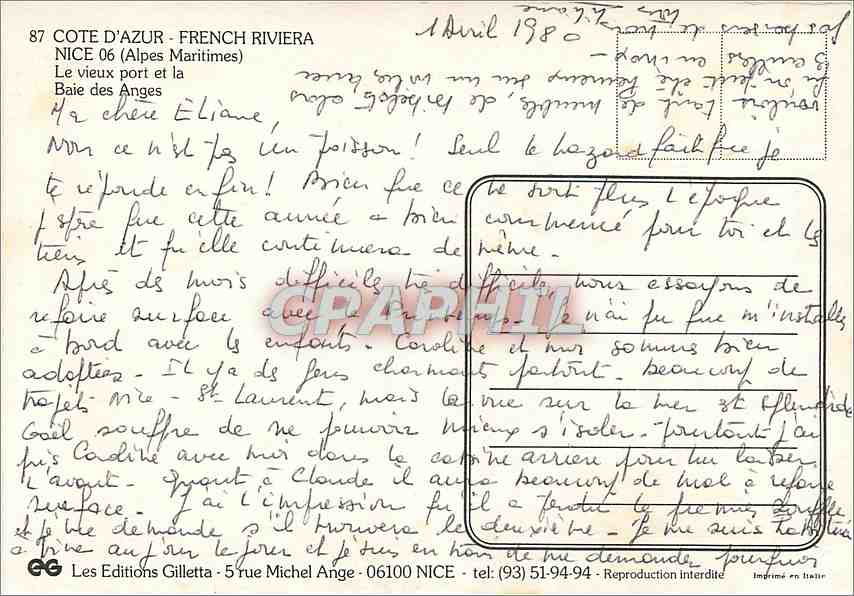 87 COTE D'AZUR - FRENCH RIVIERA
NICE 06 (Alpes Maritimes)
Le vieux port et la
Baie des Anges
1 Avril 1980
Ma chère Eliane,
Non ce n'est pas un poisson! Seul le hazard fait que je
te réponde enfin! Bien que ce ne soit plus l'époque
j'espère que cette année a bien commencé pour toi et les
tiens et qu'elle continuera de même.
Après des mois difficiles, très difficiles, nous essayons de
refaire surface avec le printemps. Je n'ai pu que m'installer
à bord avec les enfants. Caroline et moi sommes bien
adoptées. Il y a des gens charmants partout. beaucoup de
trajets Nice - St Laurent, mais la vue sur la mer est splendide
Gaël souffre de ne pouvoir mieux s'isoler. Pourtant j'ai
pris Caroline avec moi dans la cabine arrière pour lui laisser
l'avant. Quant à Claude il aura beaucoup de mal à refaire
surface. J'ai l'impression qu'il a perdu le premier souffle
et je me demande s'il trouvera le deuxième. Je me suis habituée
à vivre au jour le jour et je suis en train de me demander pourquoi
vouloir tant de meuble, de bibelots alors
qu'on peut être heureux sur un voilier, avec
3 cuillères en inox.
Gros baisers de nous trois
Liliane
CPAPHIL
EG Les Editions Gilletta - 5 rue Michel Ange - 06100 NICE - tel: (93) 51-94-94 - Reproduction interdite
Imprimé en Italie